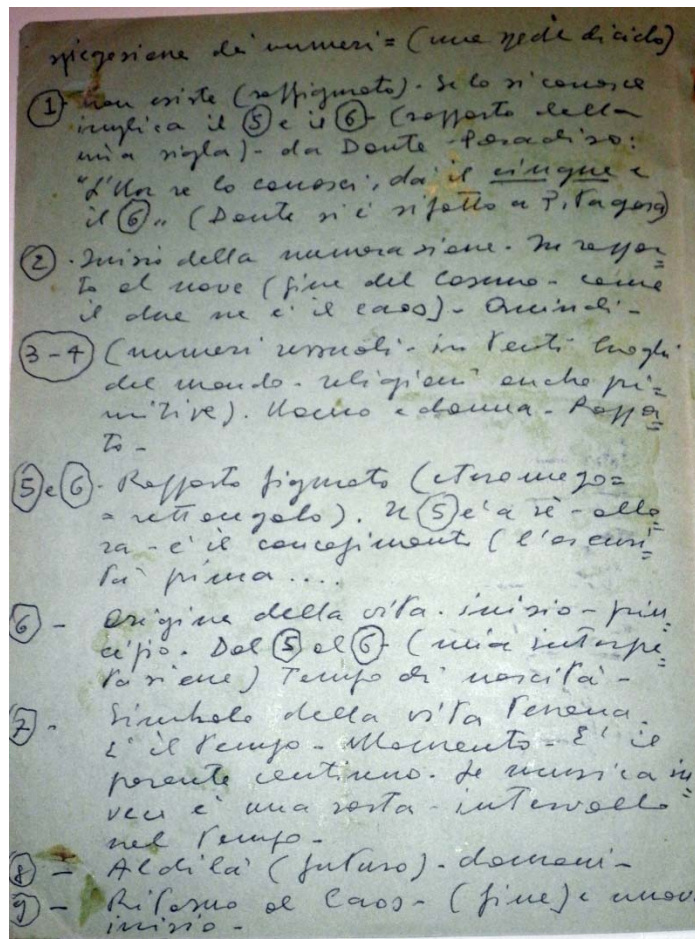 spiegazione dei numeri = (una specie di ciclo)
① - non esiste (raffigurato). Se lo si conosce
implica il ⑤ e il ⑥ - (rapporto della
mia sigla) - da Dante - Paradiso:
"L'Un se lo conosci, dà il cinque e
il ⑥" (Dante si è rifatto a Pitagora)
② - Inizio della numerazione. In rappor=
to al nove (fine del Cosmo - come
il due ne è il caos) - Quindi -
③-④ (numeri sessuali - in tanti luoghi
del mondo - religioni anche pri=
mitive). Uomo e donna - Rappor=
to -
⑤ e ⑥ - Rapporto figurato (eteromego=
= rettangolo). Il ⑤ è a sè - allo=
ra - è il concepimento (l'oscuri=
tà prima ....
⑥ - Origine della vita. inizio - prin=
cipio. Dal ⑤ al ⑥ - (mia interpre=
tazione) Tempo di nascita -
⑦ - Simbolo della vita terrena.
E' il tempo - Momento - E' il
portante continuo. In musica in=
vece è una sosta - intervallo
nel tempo -
⑧ - Aldilà (futuro) - domani -
⑨ - Ritorno al Caos - (fine) e nuovo
inizio -